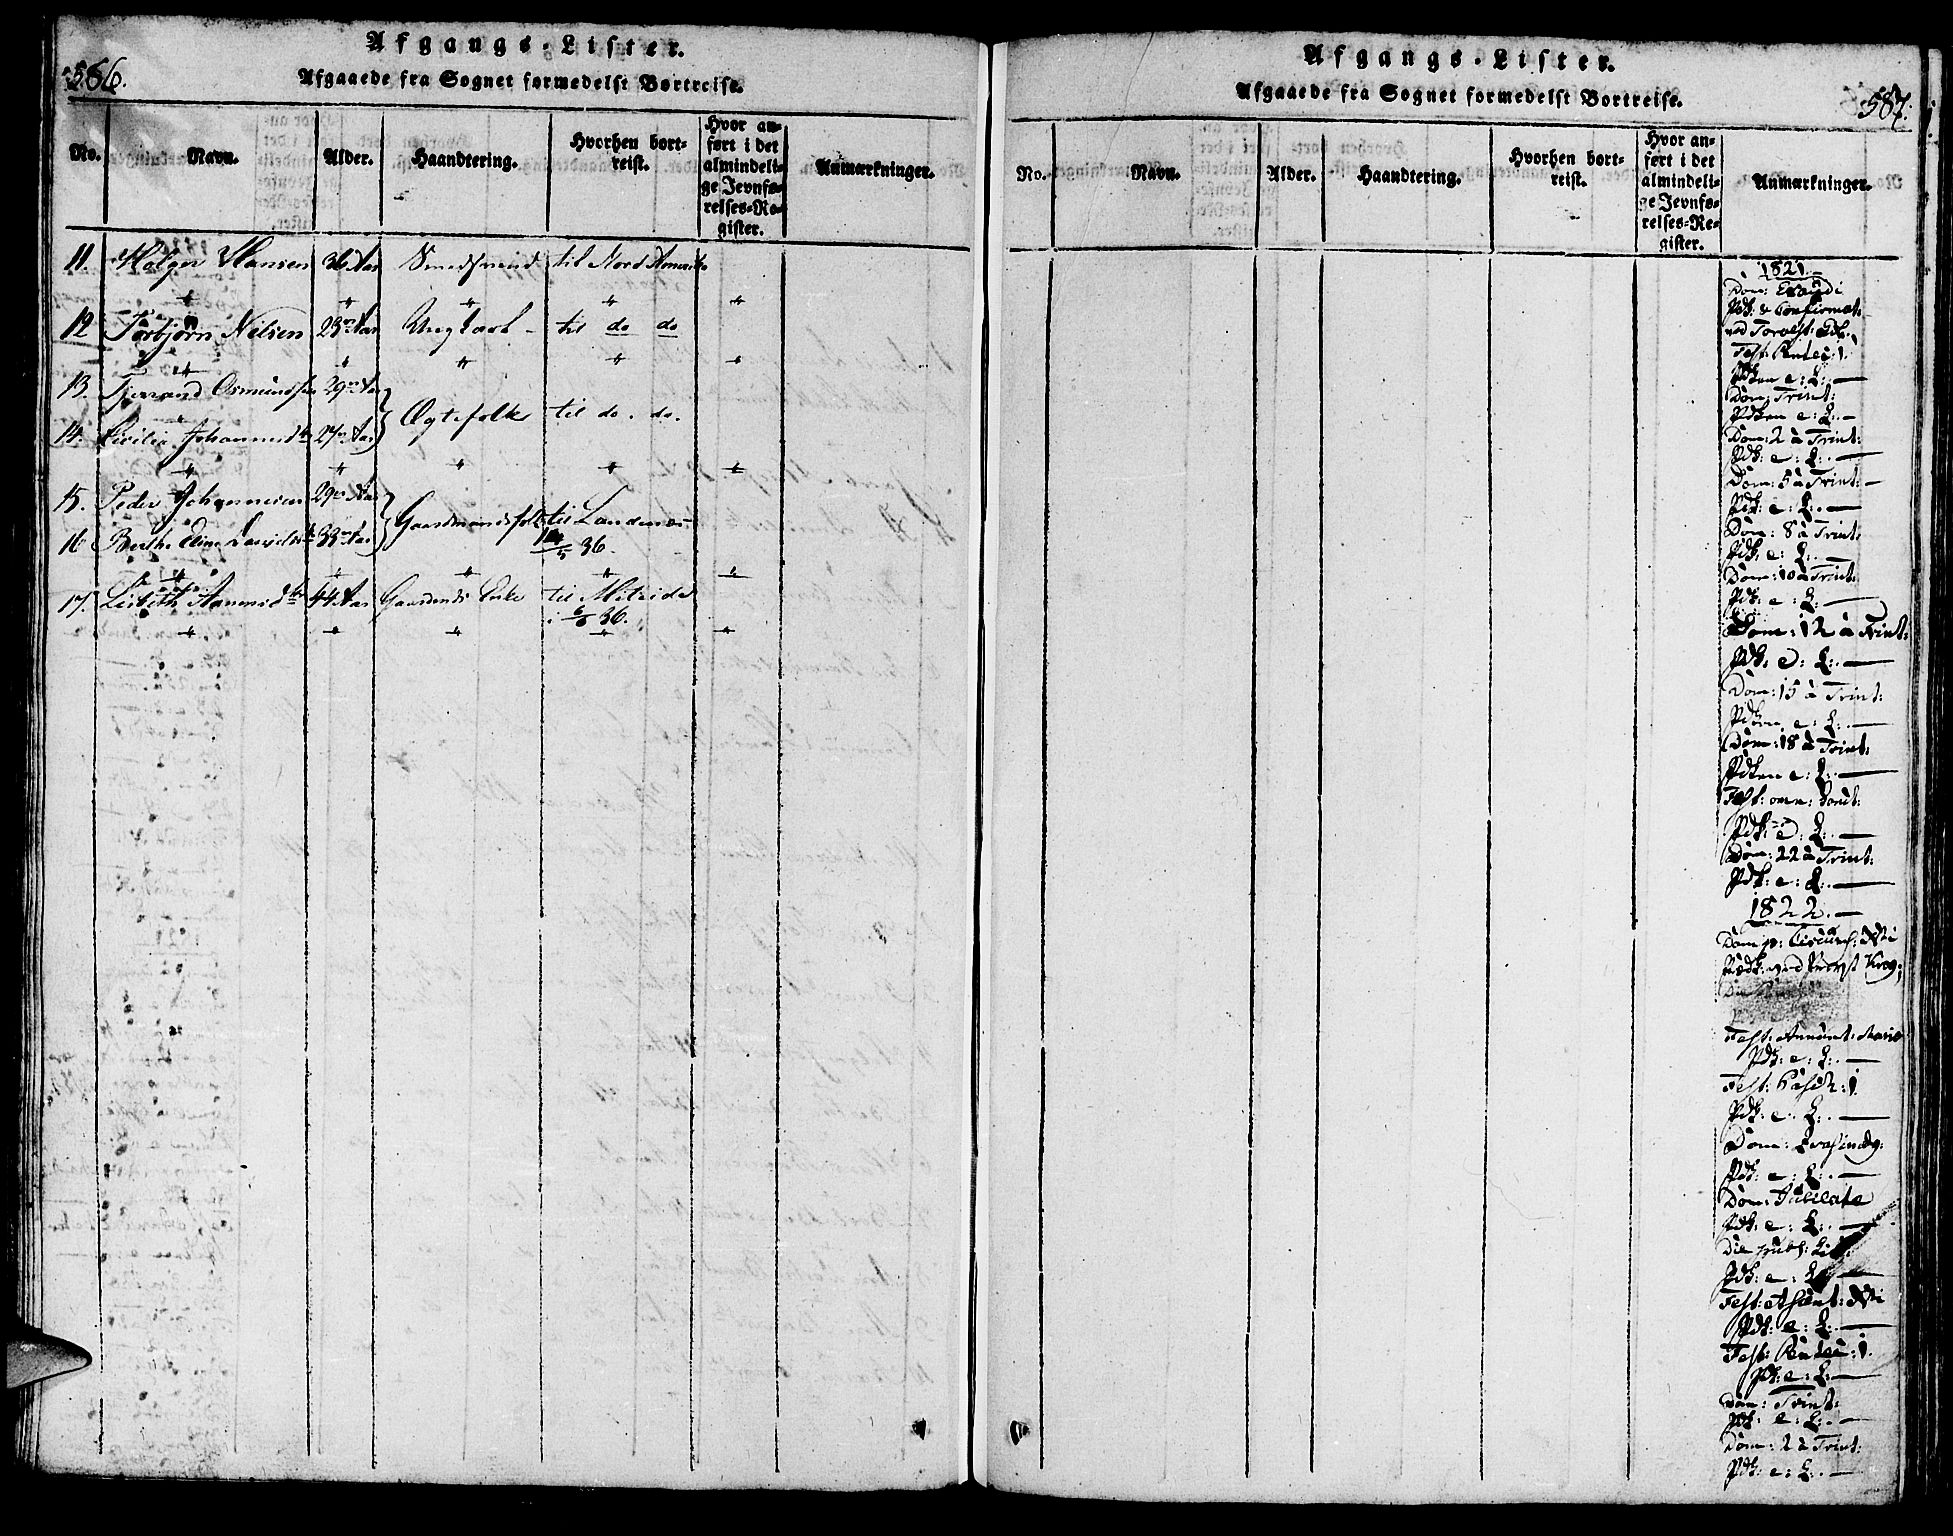 586.
Afgangs-Lister.
Afgaaede fra Sognet formedelst Bortreise.
No. Navn. Alder. Haandtering. Hvorhen bortreist. Hvor anført i det almindelige Jevnførelses-Register. Anmærkninger.
11. Holger Hansen 36 Aar til Nord Amerika
" " " " "
12 Torbjörn Nilsen 23 Aar Ungkarl - til do do
" " " " "
13. Osmundsen 29 Aar
Ægtefolk til do. do.
14. Johannesd. 27 Aar
" " " " "
15. Peder Johannesen 29 Aar
Gaardmandsfolk til
16 Berthe Eline 33 Aar 36.
" " " " "
17. Lisbeth 44 Aar Gaardmds Enke til
36.
" " " " "
587.
Afgangs-Lister.
Afgaaede fra Sognet formedelst Bortreise.
No. Navn. Alder. Haandtering. Hvorhen bortreist. Hvor anført i det almindelige Jevnførelses-Register. Anmærkninger.
1821.
Dom: Exaudi
Pdk: & Confirmat:
Fest: Pentec: 1.
e: L:. —
Dom: Trint:
e: L:. —
Dom: 2 à Trint:
Pdk: e: L:. —
Dom: 5 à Trint: —
Pdk: e: L:. —
Dom: 8 à Trint:
Pdk: e: L:. —
Dom: 10 à Trint:
Pdk: e: L:. —
Dom: 12 à Trint:
Pdk: e: L:. —
Dom: 15 à Trint:
e: L:. —
Dom: 18 à Trint:
e: L:. —
Fest: omn: Sanct:
Pdk: e: L:. —
Dom: 22 à Trint:
Pdk: e: L:. —
1822. —
Fest: Annunt: Mariæ
Pdk: e: L:. —
Fest: Pasch: 1.
Pdk: e: L:. —
Dom: Qvasimodog:
Pdk: e: L:. —
Dom: Jubilate
Pdk: e: L:. —
Pdk: e: L:. —
Fest: Ascent: Xsti
Pdk: e: L:. —
Fest: Pentec: 1.
Pdk: e: L:. —
Dom: Trint:
Pdk: e: L:. —
Dom: 2 à Trint:
Pdk: e: L:. —